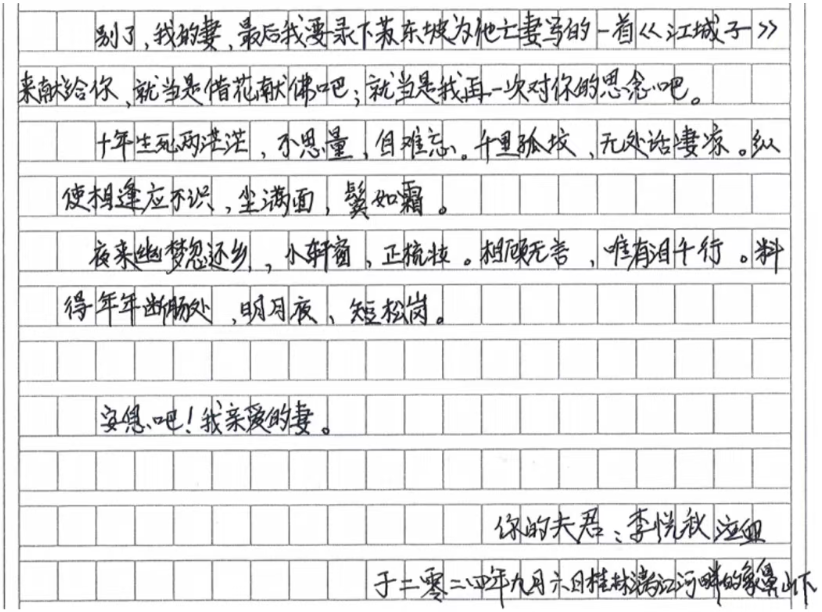 别了,我的妻,最后我要录下苏东坡为他亡妻写的一首《江城子》
来献给你,就当是借花献佛吧;就当是我再一次对你的思念吧。
十年生死两茫茫,不思量,自难忘。千里孤坟,无处话凄凉。纵
使相逢应不识,尘满面,鬓如霜。
夜来幽梦忽还乡,小轩窗,正梳妆。相顾无言,唯有泪千行。料
得年年断肠处,明月夜,短松岗。
安息吧!我亲爱的妻。
你的夫君:李悦秋泣血
于二零二四年九月六日桂林漓江河畔的象鼻山下